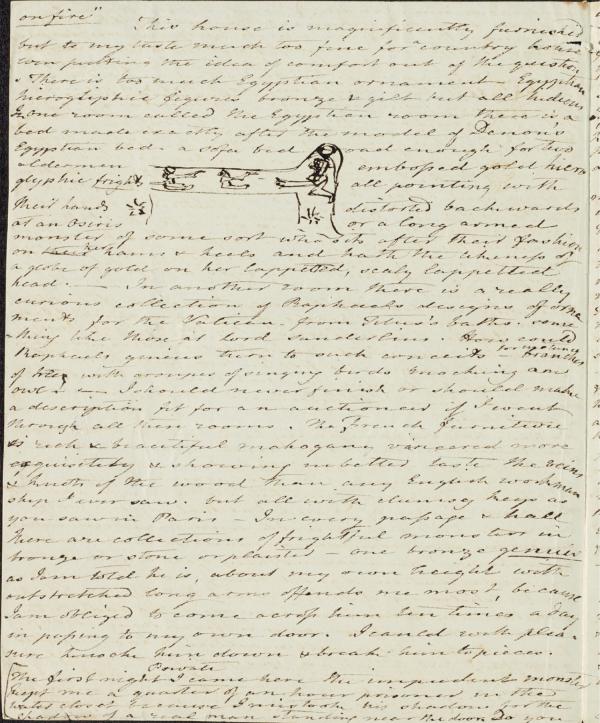 on fire"
This house is magnificently furnished
but to my taste much too fine for a country house
even putting the idea of comfort out of the question
There is too much Egyptian ornament Egyptian
hieroglyphic figures bronze & gilt but all hideous
In one room called the Egyptian room there is a
bed made exactly after the model of Denon's
Egyptian bed - a sofa bed broad enough for two
aldermen embossed gold hiero
glyphic frights all pointing with
their hands distorted backwards
at an Osiris or a long armed
monster of some sort who sits after their fashion
on her hams & heels and hath the likeness of
a globe of gold on her lappetted, scaly lappetted
head. — In another room there is a really
curious collection of Raphaels designs of orna
ments for the Vatican from Titus's baths. some
-thing like those at Lord Sunderlins. How could
Raphaels genius turn to such conceits - for instance branches
of trees with groupes of singing birds mocking an
owl. — I should never finish or should make
a description fit for an auctioneer if I went
through all these rooms. The French furniture
is rich & beautiful mahogany vineered more
exquisitely & showing in better taste the veins
& knots of the wood than any English workman
ship I ever saw. but all with clumsy keys as
you saw in Paris — In every passage & hall
there are collections of frightful monsters in
bronze or stone or plaister - one bronze genius
as I am told he is, about my own height with
outstretched long arms offends me most, because
I am obliged to come across him ten times a day
in passing to my own door. I could with plea-
sure knock him down & break him to pieces.
Private
The first night I came here the impudent monster
kept me a quarter of an hour prisoner in the
water closet because I mistook his shadow for the
shadow of a real man standing near the door Do you